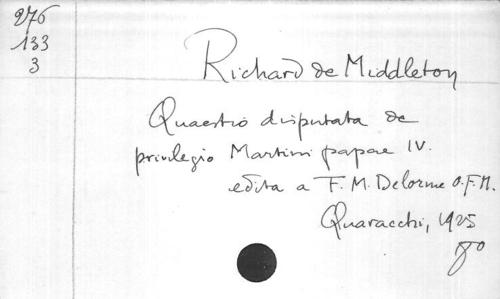 276
133
3
Richard de Middleton
Quaestio disputata de
privilegio Martini papae IV.
edita a F. M. Delorme O.F.M.
Quaracchi, 1925
8o